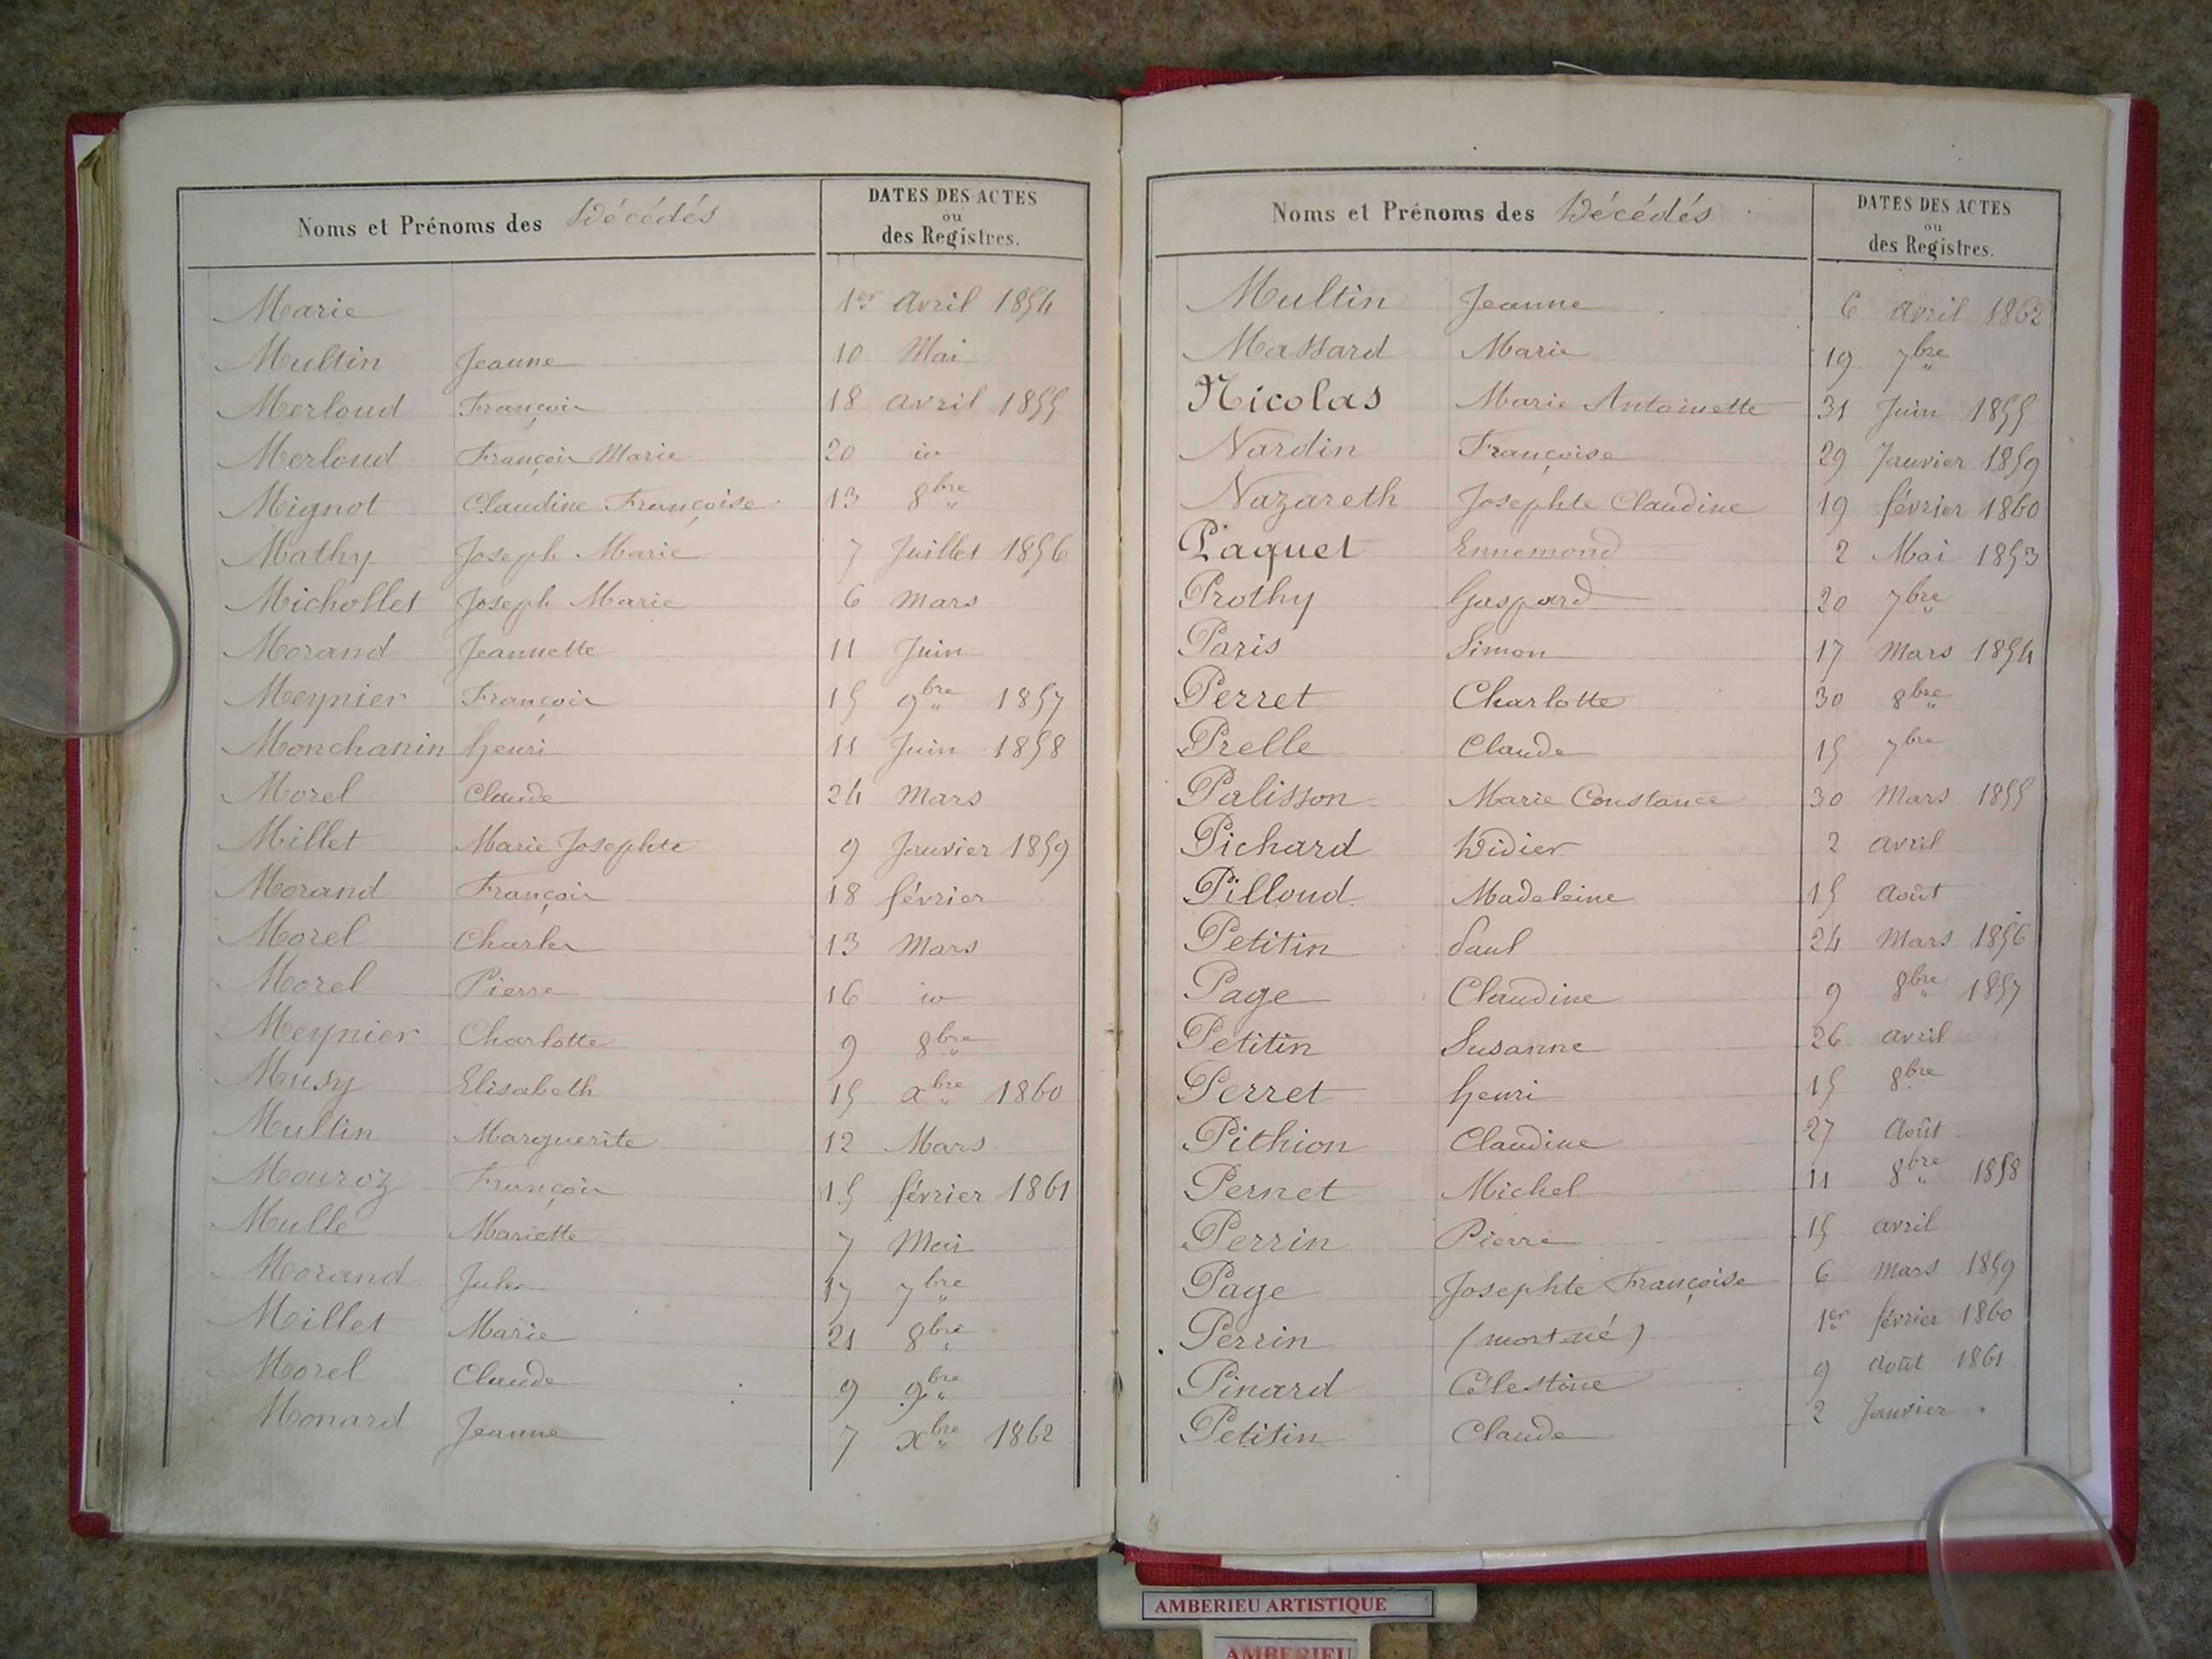 Noms et Prénoms des Décédés
DATES DES ACTES
ou
des Registres.
Marie 1er avril 1854
Multin Jeanne 10 Mai
Merloud François 18 avril 1855
Merloud François Marie 20 id
Mignot Claudine Françoise 13 8bre
Mathy Joseph Marie 7 Juillet 1856
Michollet Joseph Marie 6 mars
Morand Jeannette 11 Juin
Meynier François 15 9bre 1857
Monchanin henri 11 Juin 1858
Morel Claude 24 mars
Millet Marie Josephte 9 Janvier 1859
Morand François 18 février
Morel Charles 13 mars
Morel Pierre 16 id
Meynier Charlotte 9 8bre
Musy Elisabeth 15 xbre 1860
Multin Marguerite 12 Mars
Mouroz François 15 février 1861
Mulle Mariette 7 Mai
Morand Jules 17 7bre
Millet Marie 21 8bre
Morel Claude 9 9bre
Monard Jeanne 7 xbre 1862
Noms et Prénoms des Décédés
DATES DES ACTES
ou
des Registres.
Multin Jeanne 6 avril 1862
Massard Marie 19 7bre
Nicolas Marie Antoinette 31 Juin 1855
Nardin Françoise 29 Janvier 1859
Nazareth Josephte Claudine 19 février 1860
Paquet Ennemond 2 Mai 1853
Prothy Gaspard 20 7bre
Paris Simon 17 mars 1854
Perret Charlotte 30 8bre
Prelle Claude 15 7bre
Palisson Marie Constance 30 mars 1855
Pichard Didier 2 avril
Pilloud Madeleine 15 août
Petitin Paul 24 mars 1856
Page Claudine 9 8bre 1857
Petitin Susanne 26 avril
Perret henri 15 8bre
Pithion Claudine 27 Août
Pernet Michel 11 8bre 1858
Perrin Pierre 15 avril
Page Josephte Françoise 6 mars 1859
Perrin (mort né) 1er février 1860
Pinard Célestine 9 Août 1861
Petitin Claude 2 Janvier
AMBERIEU ARTISTIQUE
AMBERIEU